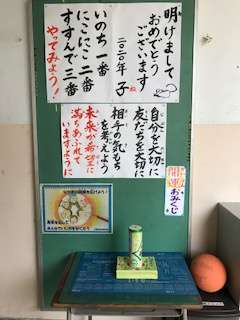 明けまして
おめでとう
ございます
二〇二〇年 子
ね
いのち一番
にこにこ二番
すすんで三番
やってみよう!
自分を大切に
友だちを大切に
相手の気もち
を考えよう
未来が希望に
満ちあふれて
いますように
開運
おみくじ